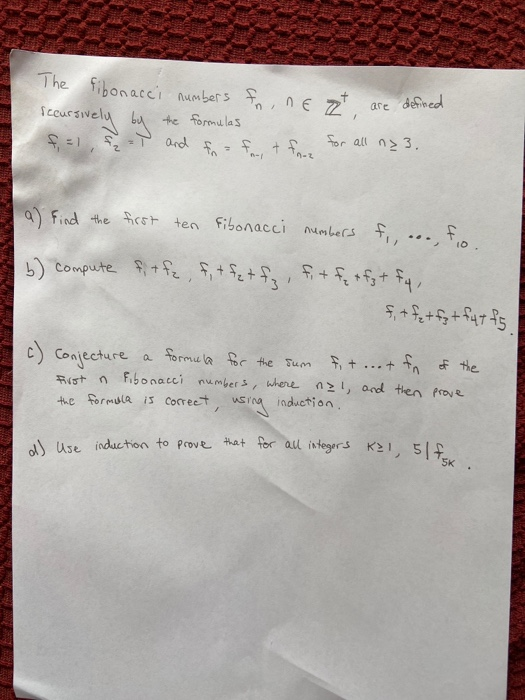 The fibonacci numbers fₙ, n ∈ ℤ⁺, are defined
recursively by the formulas
f₁ = 1, f₂ = 1 and fₙ = fₙ₋₁ + fₙ₋₂ for all n ≥ 3.
a) Find the first ten Fibonacci numbers f₁, ..., f₁₀.
b) Compute f₁ + f₂, f₁ + f₂ + f₃, f₁ + f₂ + f₃ + f₄,
f₁ + f₂ + f₃ + f₄ + f₅.
c) Conjecture a formula for the sum f₁ + ... + fₙ of the
First n Fibonacci numbers, where n ≥ 1, and then prove
the formula is correct, using induction.
d) Use induction to prove that for all integers K ≥ 1, 5 | f₅ₖ.